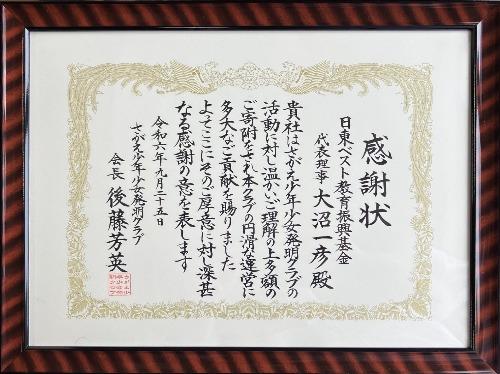 感謝状
日東ベスト教育振興基金
代表理事 大沼一彦殿
貴社はさがえ少年少女発明クラブの
活動に対し温かいご理解の上多額の
ご寄附をされ本クラブの円滑な運営に
多大なご貢献を賜りました
よってここにそのご厚意に対し深甚
なる感謝の意を表します
令和六年九月二十五日
さがえ少年少女発明クラブ
会長 後藤芳英